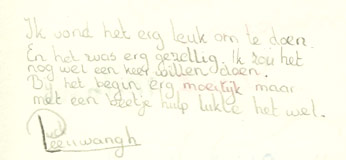 Ik vond het erg leuk om te doen.
En het was erg gezellig. Ik zou het
nog wel een keer willen doen.
Bij het begin erg moeilijk maar
met een beetje hulp lukte het wel.